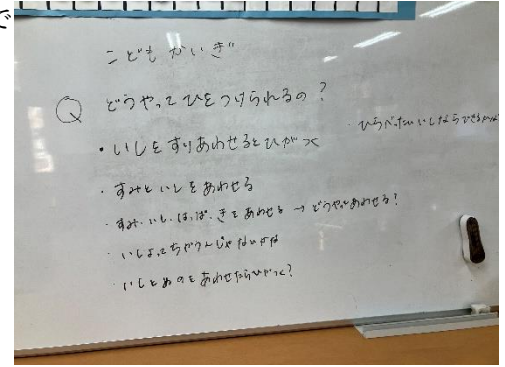 で
こどもかいぎ
Q どうやってひをつけられるの?
・いしをすりあわせるとひがつく
・ひらべったいいしならできるかも
・すみといしをあわせる
・すみ・いし・はっぱ・きをあわせる → どうやってあわせる?
・いしよってちがうんじゃないかな
・いしとぬのをあわせたらひがつく?